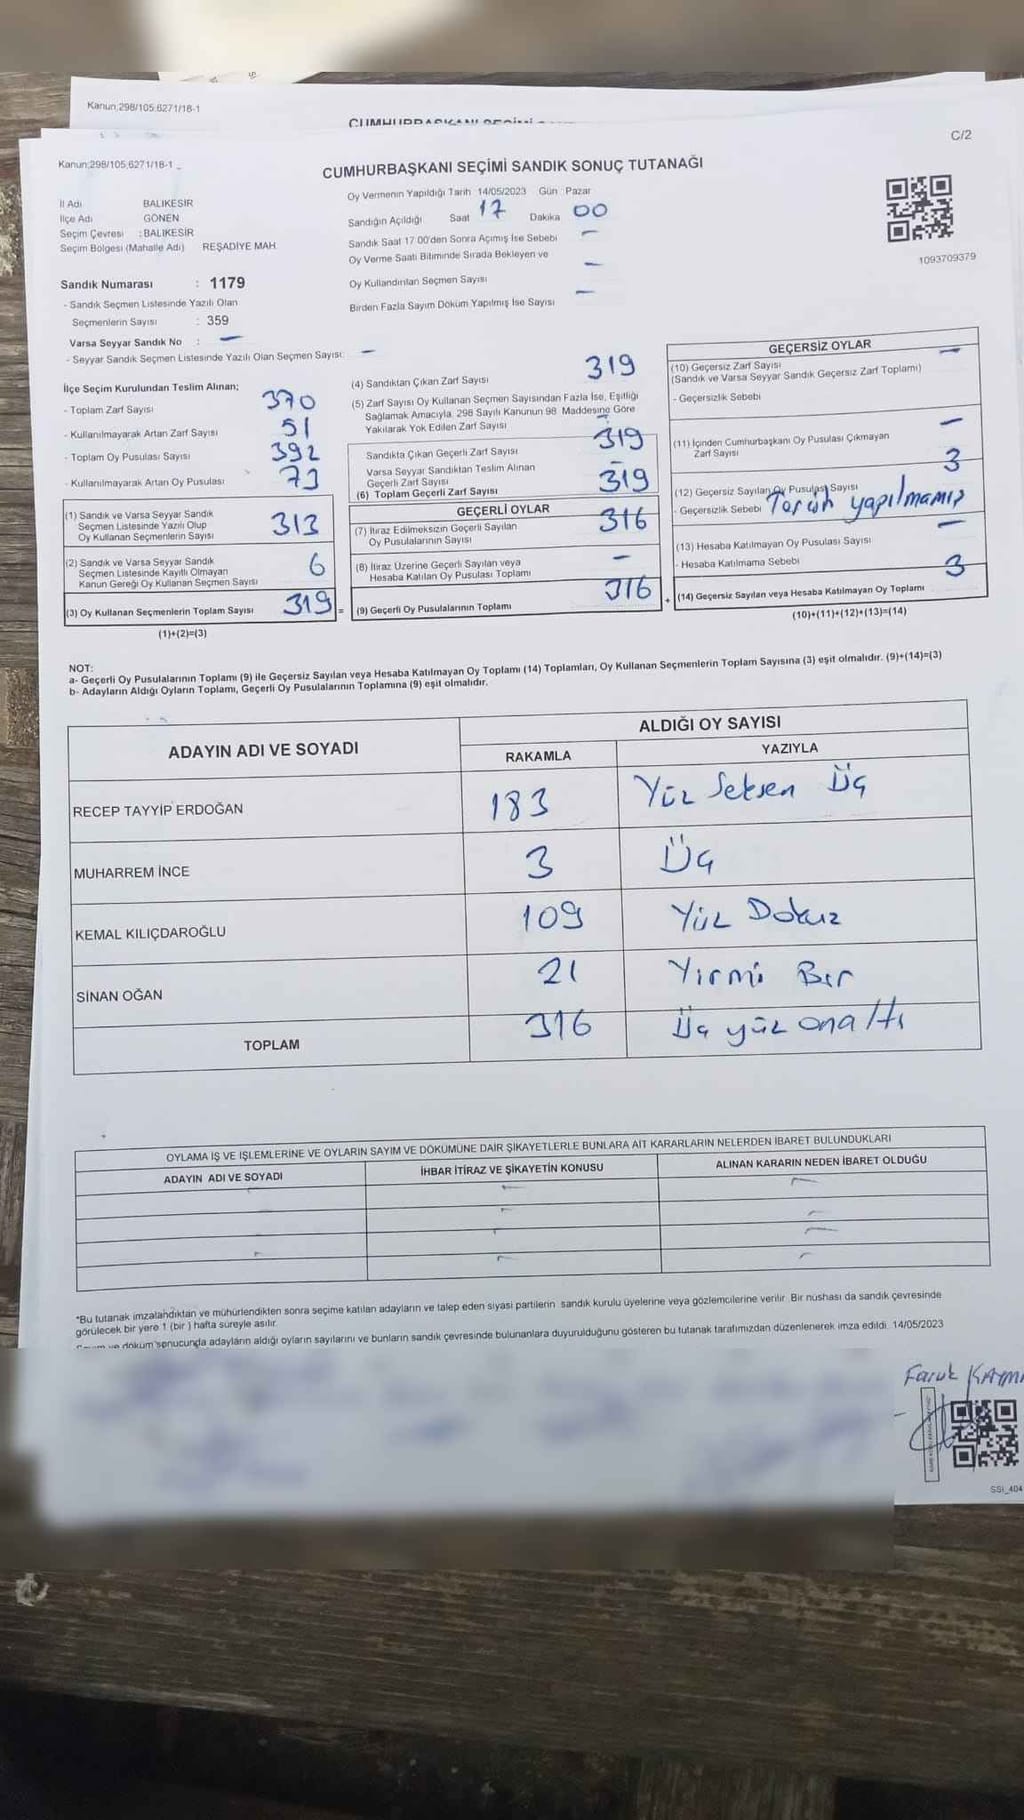 Kanun;298/105;6271/18-1
Kanun;298/105;6271/18-1
C/2
CUMHURBAŞKANI SEÇİMİ SANDIK SONUÇ TUTANAĞI
İl Adı BALIKESİR
İlçe Adı GÖNEN
Seçim Çevresi : BALIKESİR
Seçim Bölgesi (Mahalle Adı) REŞADİYE MAH.
Oy Vermenin Yapıldığı Tarih 14/05/2023 Gün : Pazar
Sandığın Açıldığı Saat 17 Dakika 00
Sandık Saat 17:00'den Sonra Açımış İse Sebebi —
Oy Verme Saati Bitiminde Sırada Bekleyen ve
Oy Kullandırılan Seçmen Sayısı —
Birden Fazla Sayım Döküm Yapılmış İse Sayısı —
1093709379
Sandık Numarası : 1179
- Sandık Seçmen Listesinde Yazılı Olan
Seçmenlerin Sayısı : 359
Varsa Seyyar Sandık No : —
- Seyyar Sandık Seçmen Listesinde Yazılı Olan Seçmen Sayısı: —
İlçe Seçim Kurulundan Teslim Alınan;
- Toplam Zarf Sayısı 370
- Kullanılmayarak Artan Zarf Sayısı 51
- Toplam Oy Pusulası Sayısı 392
- Kullanılmayarak Artan Oy Pusulası 73
(1) Sandık ve Varsa Seyyar Sandık
Seçmen Listesinde Yazılı Olup
Oy Kullanan Seçmenlerin Sayısı 313
(2) Sandık ve Varsa Seyyar Sandık
Seçmen Listesinde Kayıtlı Olmayan
Kanun Gereği Oy Kullanan Seçmen Sayısı 6
(3) Oy Kullanan Seçmenlerin Toplam Sayısı 319 =
(1)+(2)=(3)
(4) Sandıktan Çıkan Zarf Sayısı 319
(5) Zarf Sayısı Oy Kullanan Seçmen Sayısından Fazla İse, Eşitliği
Sağlamak Amacıyla, 298 Sayılı Kanunun 98. Maddesine Göre
Yakılarak Yok Edilen Zarf Sayısı —
Sandıkta Çıkan Geçerli Zarf Sayısı 319
Varsa Seyyar Sandıktan Teslim Alınan
Geçerli Zarf Sayısı —
(6) Toplam Geçerli Zarf Sayısı 319
GEÇERLİ OYLAR
(7) İtiraz Edilmeksizin Geçerli Sayılan
Oy Pusulalarının Sayısı 316
(8) İtiraz Üzerine Geçerli Sayılan veya
Hesaba Katılan Oy Pusulası Toplamı —
(9) Geçerli Oy Pusulalarının Toplamı 316 +
GEÇERSİZ OYLAR
(10) Geçersiz Zarf Sayısı —
(Sandık ve Varsa Seyyar Sandık Geçersiz Zarf Toplamı)
- Geçersizlik Sebebi
(11) İçinden Cumhurbaşkanı Oy Pusulası Çıkmayan —
Zarf Sayısı
(12) Geçersiz Sayılan Oy Pusulası Sayısı 3
- Geçersizlik Sebebi Tercih yapılmamış
(13) Hesaba Katılmayan Oy Pusulası Sayısı —
- Hesaba Katılmama Sebebi
(14) Geçersiz Sayılan veya Hesaba Katılmayan Oy Toplamı 3
(10)+(11)+(12)+(13)=(14)
NOT:
a- Geçerli Oy Pusulalarının Toplamı (9) ile Geçersiz Sayılan veya Hesaba Katılmayan Oy Toplamı (14) Toplamları, Oy Kullanan Seçmenlerin Toplam Sayısına (3) eşit olmalıdır. (9)+(14)=(3)
b- Adayların Aldığı Oyların Toplamı, Geçerli Oy Pusulalarının Toplamına (9) eşit olmalıdır.
ADAYIN ADI VE SOYADI ALDIĞI OY SAYISI
RAKAMLA YAZIYLA
RECEP TAYYİP ERDOĞAN 183 Yüz Seksen Üç
MUHARREM İNCE 3 Üç
KEMAL KILIÇDAROĞLU 109 Yüz Dokuz
SİNAN OĞAN 21 Yirmi Bir
TOPLAM 316 Üç yüz onaltı
OYLAMA İŞ VE İŞLEMLERİNE VE OYLARIN SAYIM VE DÖKÜMÜNE DAİR ŞİKAYETLERLE BUNLARA AİT KARARLARIN NELERDEN İBARET BULUNDUKLARI
ADAYIN ADI VE SOYADI İHBAR İTİRAZ VE ŞİKAYETİN KONUSU ALINAN KARARIN NEDEN İBARET OLDUĞU
*Bu tutanak imzalandıktan ve mühürlendikten sonra seçime katılan adayların ve talep eden siyasi partilerin sandık kurulu üyelerine veya gözlemcilerine verilir. Bir nüshası da sandık çevresinde
görülecek bir yere 1 (bir) hafta süreyle asılır.
ve döküm sonucunda adayların aldığı oyların sayılarını ve bunların sandık çevresinde bulunanlara duyurulduğunu gösteren bu tutanak tarafımızdan düzenlenerek imza edildi. 14/05/2023
Faruk
SSI_404